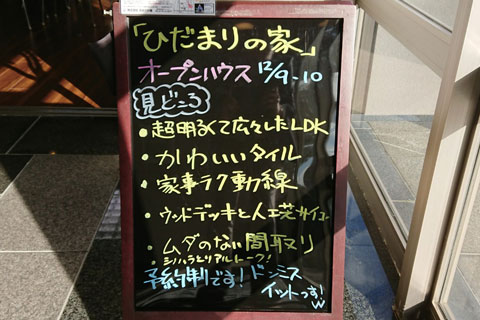 「ひだまりの家」
オープンハウス 12/9-10
見どころ
・超明るくて広々したLDK
・かわいいタイル
・家事ラク動線
・ウッドデッキと人工芝サイコー
・ムダのない間取り
・シノハラとリアルトーク!
予約制です!ドンミス
イットっす!w